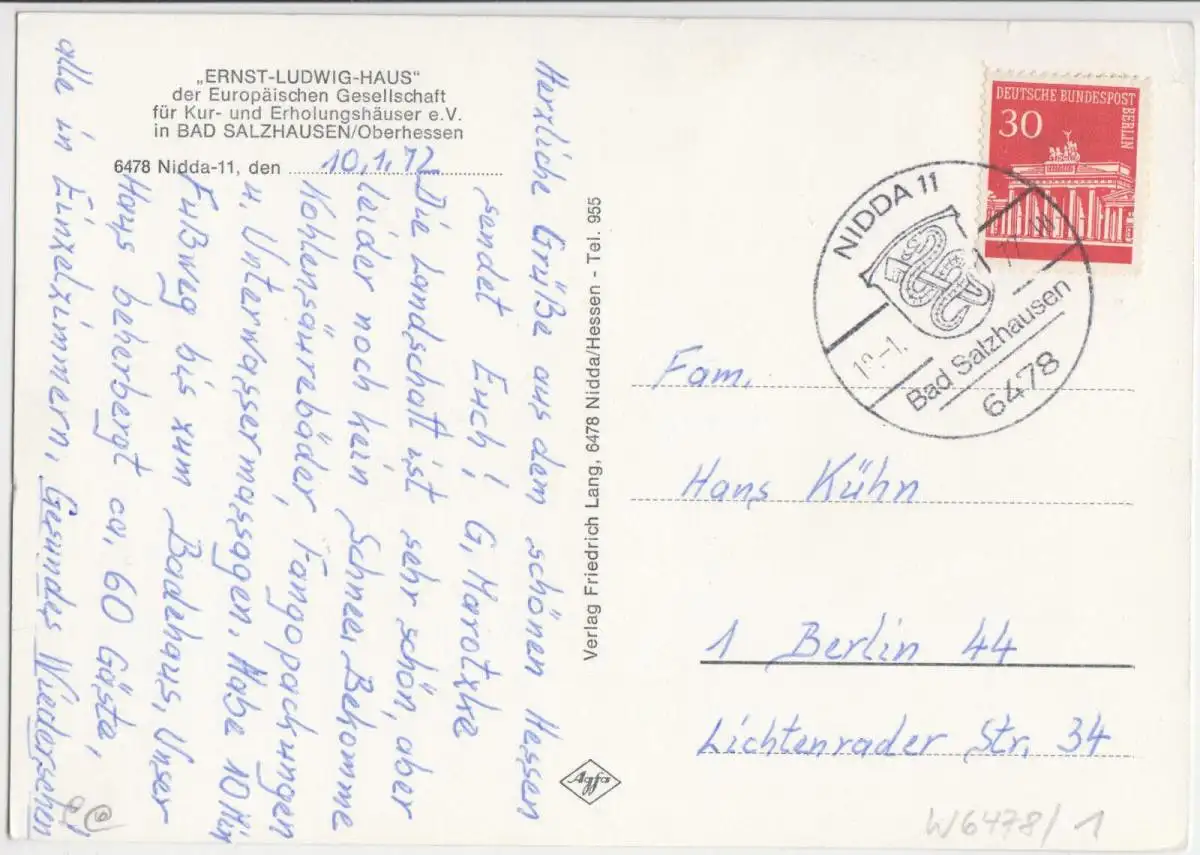 „ERNST-LUDWIG-HAUS“
der Europäischen Gesellschaft
für Kur- und Erholungshäuser e.V.
in BAD SALZHAUSEN/Oberhessen
6478 Nidda-11, den 10.1.72
Herzliche Grüße aus dem schönen Hessen
sendet Euch! G. Marotzke
Die Landschaft ist sehr schön, aber
leider noch kein Schnee. Bekomme
Kohlensäurebäder, Fangopackungen
u. Unterwassermassagen. Habe 10 Min
Fußweg bis zum Badehaus, Unser
Haus beherbergt ca. 60 Gäste,
alle in Einzelzimmern, Gesundes Wiedersehen
Verlag Friedrich Lang, 6478 Nidda/Hessen - Tel. 955
Agfa
DEUTSCHE BUNDESPOST
BERLIN
30
NIDDA 11
Bad Salzhausen
6478
Fam.
Hans Kühn
1 Berlin 44
Lichtenrader Str. 34
W6478/1